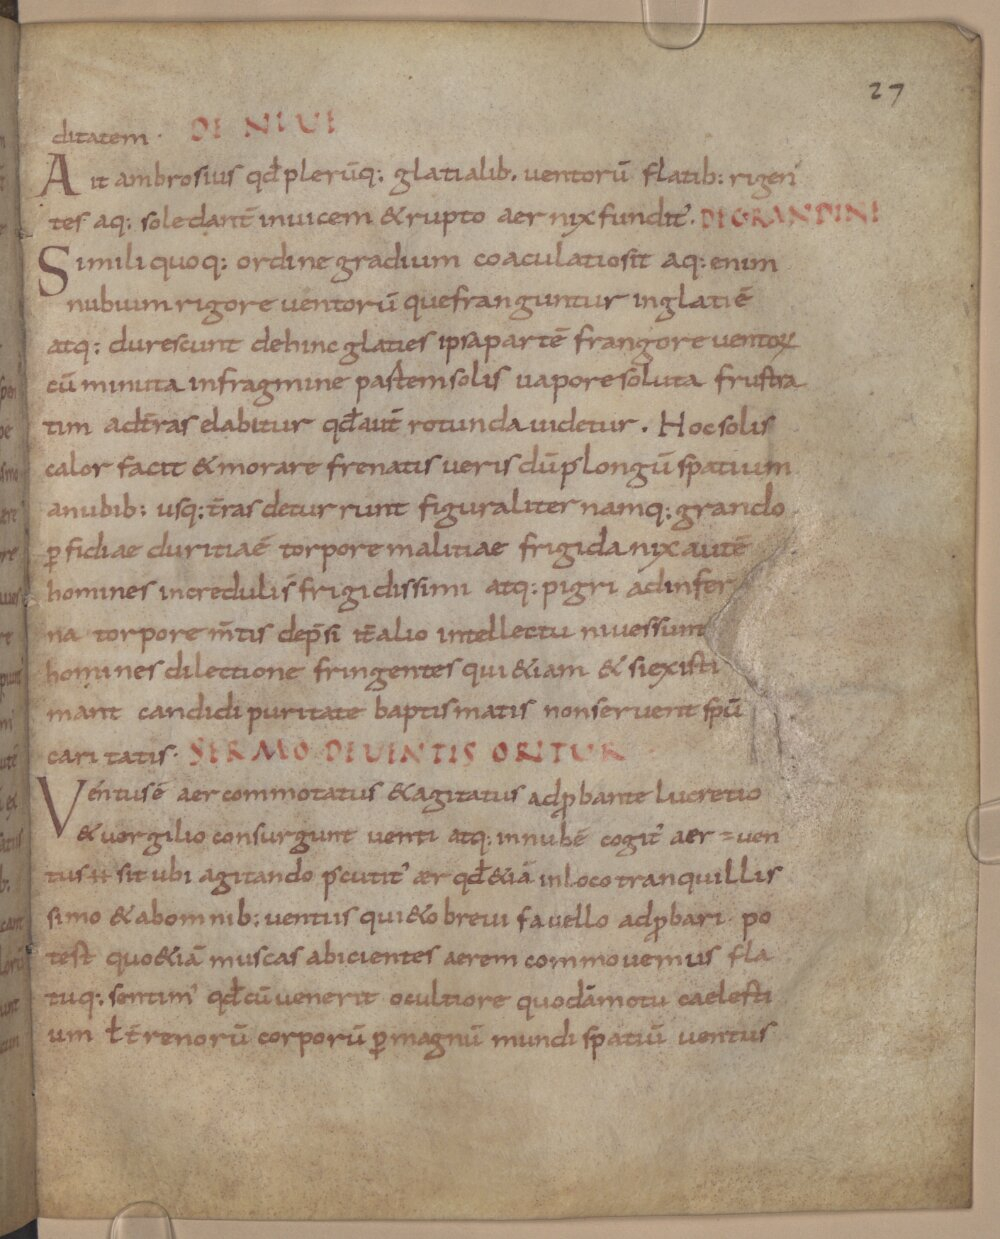 27
ditatem · DE NIVE
Ait ambrosius qđ plerūq; glatialib; ventorū flatib; rigen
tes aq; soledantē invicem & rupto aer nix fundit᷒. DE GRANDINE
Simili quoq; ordine gradium coaculatio sit aq; enim
nubium rigore ventorū que franguntur in glatiē
atq; durescunt dehinc glaties ipsa partē frangore ventoꝝ
cū minuta infragmine partem solis vapore soluta frustra
tim ad tr̄as elabitur qđ aut̄ rotunda videtur. Hoc solis
calor facit & morare frenatis veris dū p longū spatium
a nubib; usq; tr̄as deturrunt figuraliter namq; grando
ꝑfidiae duritiaē torpore malitiae frigida nix autē
homines increduli s̄ frigidissimi atq; pigri ad infer
na torpore m̄tis dep̄si it̄ alio intellectu nives sunt
homines dilectione fringentes qui &iam & si existi
mant candidi puritate baptismatis non servent sp̄u
caritatis · SERMO DE VENTIS ORITUR
Ventus ē aer commotatus & agitatus adꝓbante lucretio
& vorgilio consurgunt venti atq; in nubē cogit᷒ aer = ven
tus H sit ubi agitando ꝑcutit᷒ aer qđ &iā in loco tranquillis
simo & ab omnib; ventus qui&o brevi favello adꝓbari po
test quo &iā muscas abicientes aerem commovemus fla
tuq; sentim᷒ qđ cū venerit ocultiore quodā motu caelesti
um ł t̄renorū corporū ꝑ magnū mundi spatiū ventus